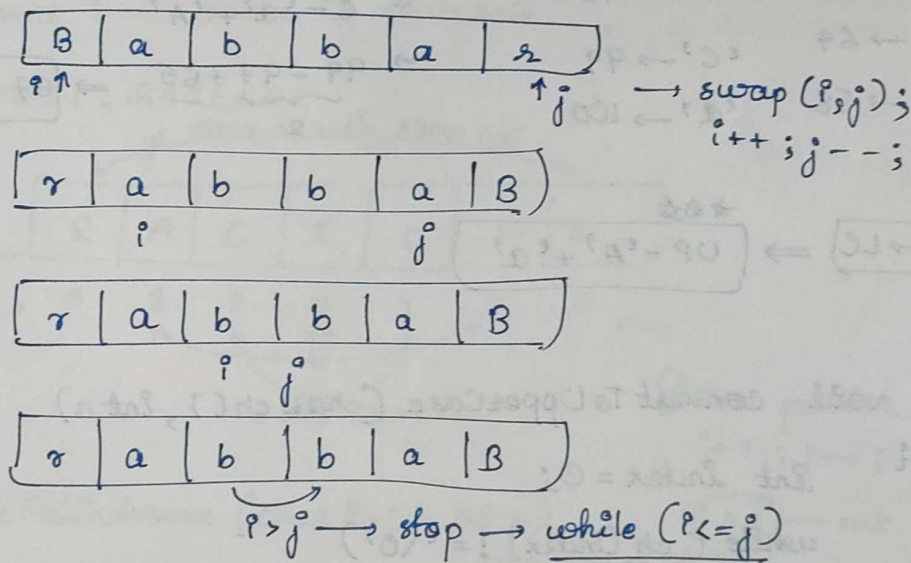 B | a | b | b | a | r
i↑ ↑j → swap (i,j);
i++; j--;
r | a | b | b | a | B
i j
r | a | b | b | a | B
i j
r | a | b | b | a | B
i>j → stop → while (i<=j)